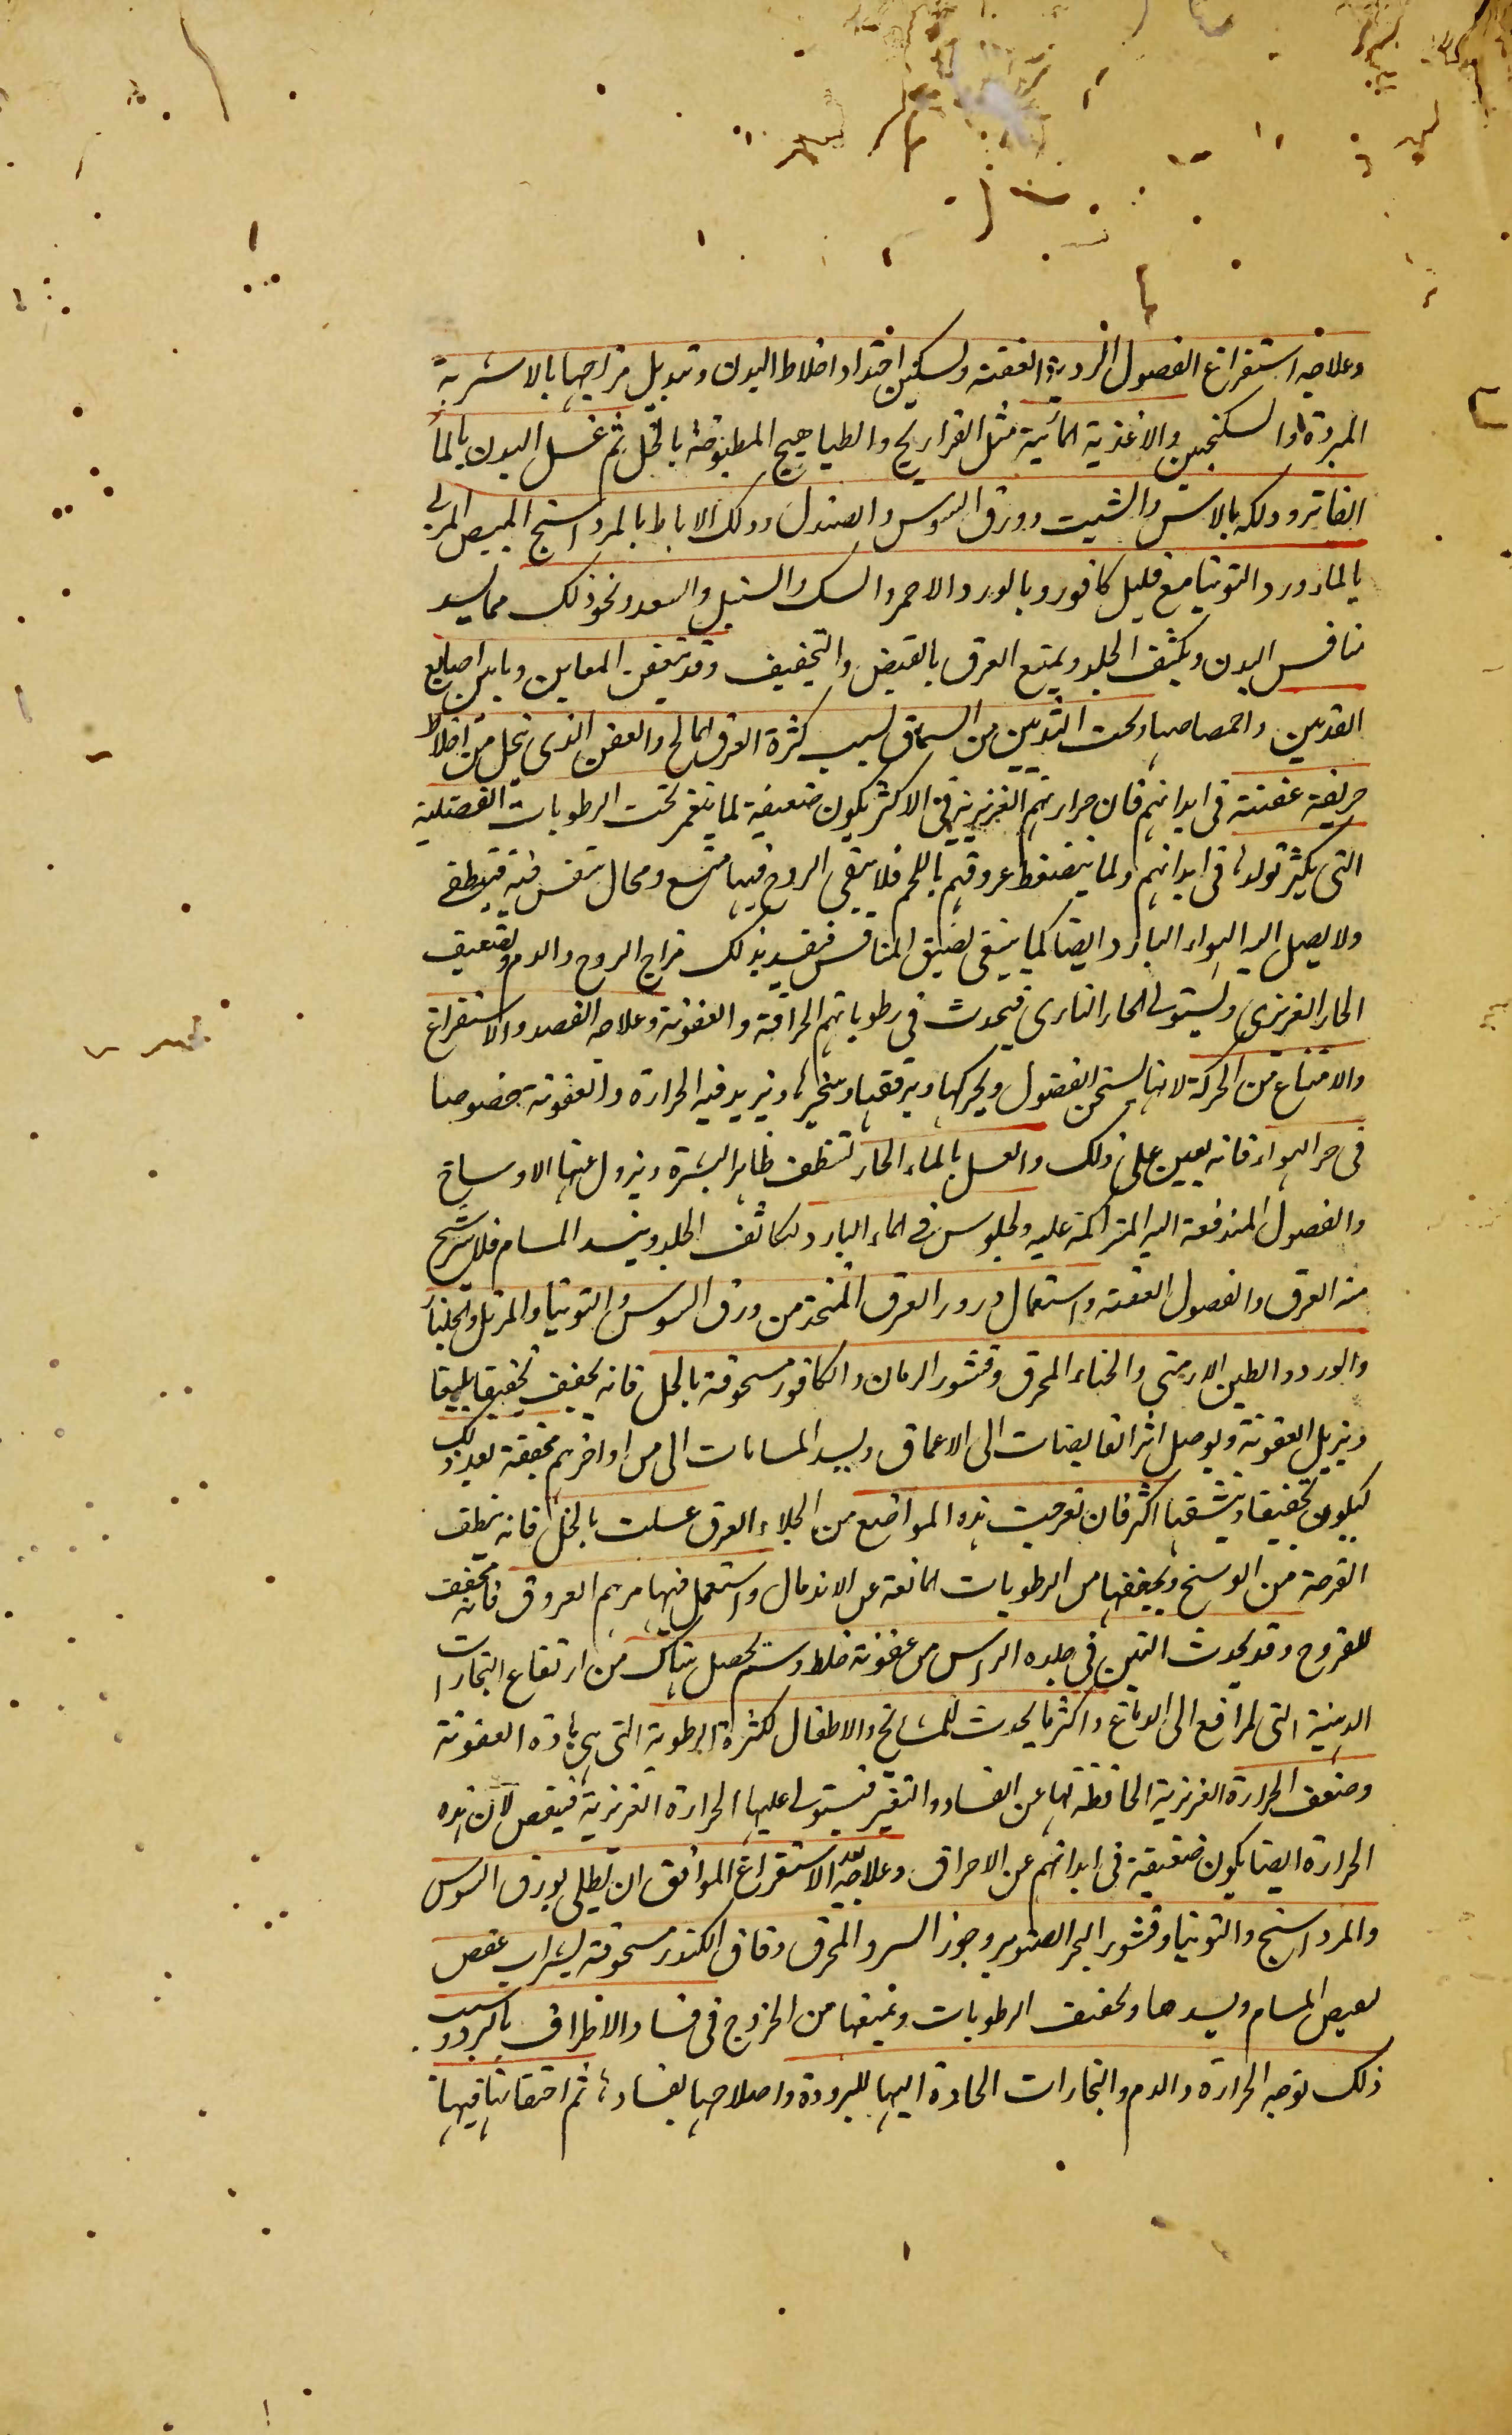 وعلاجه استفراغ الفضول الردية العفنة وتسكين احتداد اخلاط البدن وتبديل مزاجها بالاشربة
المبردة والسكنجبين والاغذية المائية مثل الفراريج والطياهيج المطبوخة بالخل ثم غسل البدن بالماء
الفاتر ودلكه بالاس والشبت وورق السوس والصندل ودلك الاباط بالمرداسنج المبيض المربى
بالماء ورد والتوتيا مع قليل كافور وبالورد الاحمر والسك والسنبل والسعد ونحو ذلك مما يسد
منافس البدن ويكثف الجلد ويمنع العرق بالقبض والتجفيف وقد يتعفن المغابن وما بين اصابع
القدمين واخمصاصها وتحت الثديين من السماق لسبب كثرة العرق المالح والعفن الذى يتحلل من اخلاط
حريفة عفنة فى ابدانهم فان حرارتهم الغريزية فى الاكثر يكون ضعيفة لما ينغمر تحت الرطوبات الفضلية
التى يكثر تولدها فى ابدانهم ولما ينضغط عروقهم باللحم فلا يبقى الروح فيها متسع ومحال يتنفس فيه فينطفى
ولا يصل اليه الهواء البارد ايضا كما ينبغى لضيق المنافس فيفسد بذلك مزاج الروح والدم ولضعيف
الحار الغريزى ويستولى الحار النارى فيحدث فى رطوباتهم الحرافة والعفونة وعلاجه الفصد والاستفراغ
والامتناع من الحركة لانها يسخن الفضول ويحركها ويرققها ويبخرها ويزيد فيه الحرارة والعفونة خصوصا
فى حر الهواء فانه يعين على ذلك والغسل بالماء الحار لتنظف ظاهر البشرة ويزول عنها الاوساخ
والفضول المندفعة اليه المتراكمة عليه والجلوس فى الماء البارد لتكاثف الجلد وينسد المسام فلا يترشح
منه العرق والفضول العفنة واستعمال ذرور العرق المتخذ من ورق السوس والتوتيا والمرتك والجلنار
والورد والطين الارمنى والحناء المحرق وقشور الرمان والكافور مسحوقة بالخل فانه يجفف تجفيفا بليغا
ويزيل العفونة ويوصل اثر القابضات الى الاعماق ويسد المسامات التى من اواخرهم مجففة بعد ذلك
ليكون تجفيفا وينشفها اكثر فان تقرحت هذه المواضع من الجلاء العرق غسلت بالخل فانه ينظف
القرحة من الوسخ ويجففها من الرطوبات المانعة عن الاندمال واستعمل فيها مرهم العروق فانه يجفف
للقروح وقد يحدث النتن فى جلده الراس من عفونة خلط دسم يحصل هناك من ارتفاع البخارات
الدهنية التى المرافع الى الدماغ واكثر ما يحدث للمشايخ والاطفال لكثرة الرطوبة التى هى مادة العفونة
وضعف الحرارة الغريزية الحافظة لها عن الفساد والتغير فيستولى عليها الحرارة الغريزية فيعفن لان هذه
الحرارة ايضا يكون ضعيفة فى ابدانهم عن الاحراق وعلاجه بعد الاستفراغ الموافق ان يطلى بورق السوس
والمرداسنج والتوتيا وقشور البحر الصنوبر وجوز السرو المحرق ودقاق الكندر مسحوقة بشراب عفص
لعيص المسام ويسدها ويجفف الرطوبات ويمنعها من الخروج فى فساد الاطراف بالبرد وسبب
ذلك توجه الحرارة والدم والبخارات الحادة اليها للبرودة واصلاحها بفسادها ثم احتقانها فيها